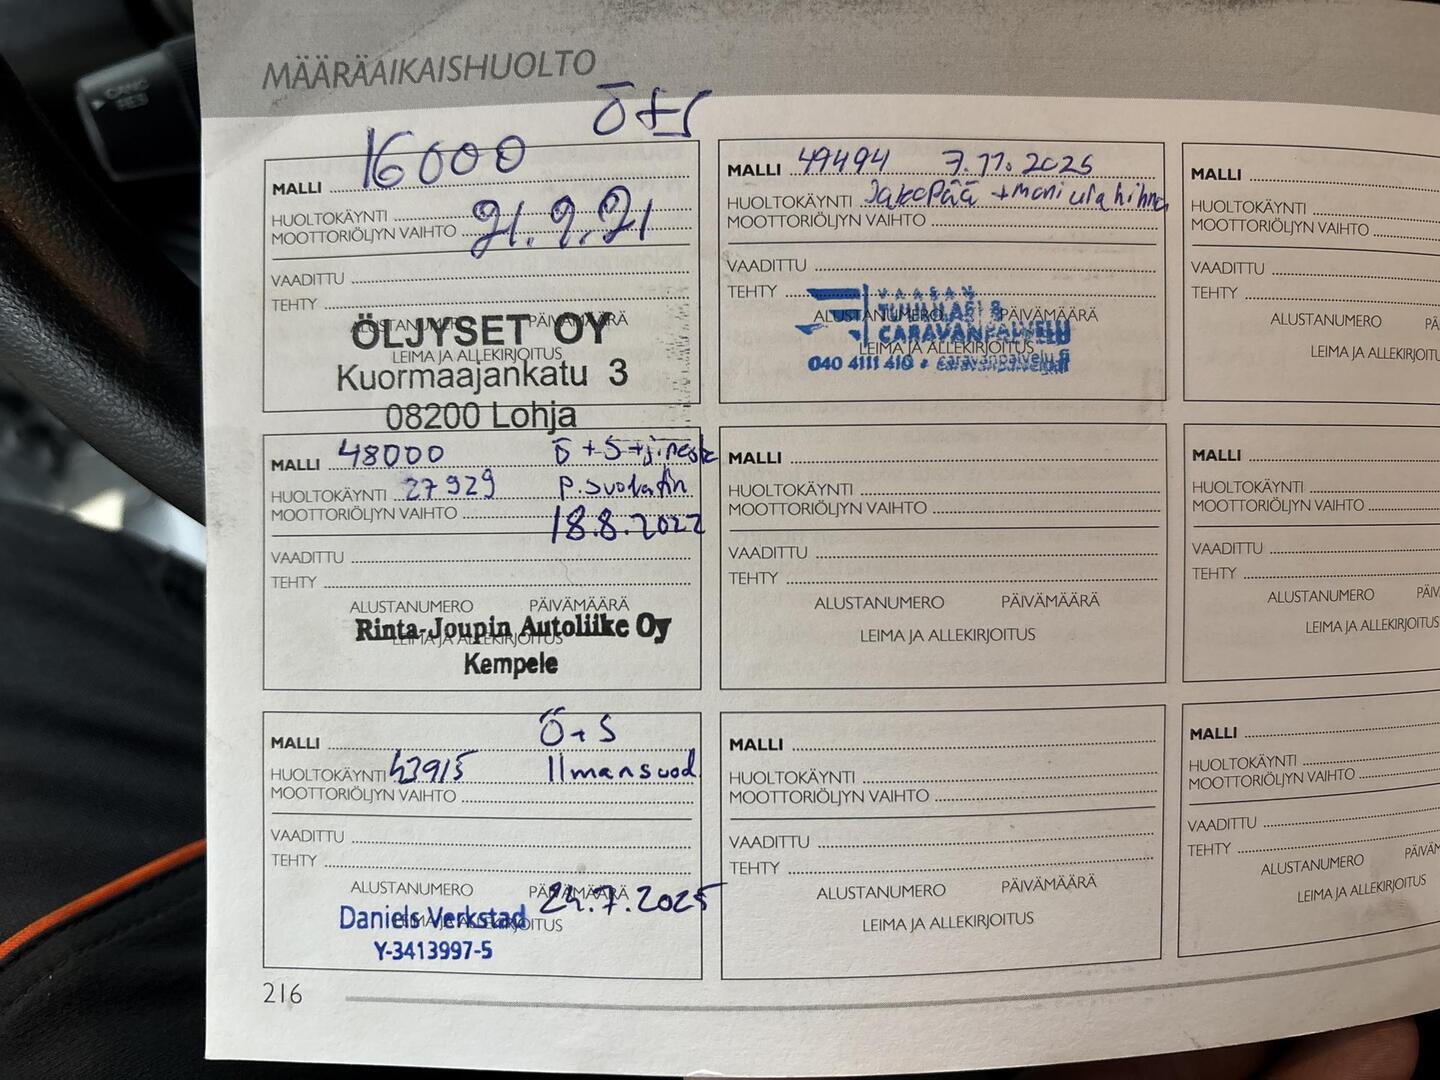 MÄÄRÄAIKAISHUOLTO
Ö+S
16000
MALLI
HUOLTOKÄYNTI
MOOTTORIÖLJYN VAIHTO
21.9.21
VAADITTU
TEHTY
ALUSTANUMERO PÄIVÄMÄÄRÄ
ÖLJYSET OY
LEIMA JA ALLEKIRJOITUS
Kuormaajankatu 3
08200 Lohja
MALLI 48000 Ö+S+j.neste
HUOLTOKÄYNTI 27929 P.suodatin
MOOTTORIÖLJYN VAIHTO 18.8.2022
VAADITTU
TEHTY
ALUSTANUMERO PÄIVÄMÄÄRÄ
Rinta-Joupin Autoliike Oy
LEIMA JA ALLEKIRJOITUS
Kempele
Ö+S
MALLI
HUOLTOKÄYNTI 43915 Ilmansuod
MOOTTORIÖLJYN VAIHTO
VAADITTU
TEHTY
ALUSTANUMERO PÄIVÄMÄÄRÄ
24.7.2025
Daniels Verkstad
LEIMA JA ALLEKIRJOITUS
Y-3413997-5
216
MALLI 49494 7.11.2025
HUOLTOKÄYNTI Jakopää + moniurahihna
MOOTTORIÖLJYN VAIHTO
VAADITTU
TEHTY
VAASAN
TUULILASI &
ALUSTANUMERO PÄIVÄMÄÄRÄ
CARAVANPALVELU
LEIMA JA ALLEKIRJOITUS
040 4111 410 • caravanpalvelu.fi
MALLI
HUOLTOKÄYNTI
MOOTTORIÖLJYN VAIHTO
VAADITTU
TEHTY
ALUSTANUMERO PÄIVÄMÄÄRÄ
LEIMA JA ALLEKIRJOITUS
MALLI
HUOLTOKÄYNTI
MOOTTORIÖLJYN VAIHTO
VAADITTU
TEHTY
ALUSTANUMERO PÄIVÄMÄÄRÄ
LEIMA JA ALLEKIRJOITUS
MALLI
HUOLTOKÄYNTI
MOOTTORIÖLJYN VAIHTO
VAADITTU
TEHTY
ALUSTANUMERO
LEIMA JA ALLEKIRJOITU
MALLI
HUOLTOKÄYNTI
MOOTTORIÖLJYN VAIHTO
VAADITTU
TEHTY
ALUSTANUMERO PÄIV
LEIMA JA ALLEKIRJOITUS
MALLI
HUOLTOKÄYNTI
MOOTTORIÖLJYN VAIHTO
VAADITTU
TEHTY
ALUSTANUMERO PÄIVÄM
LEIMA JA ALLEKIRJOITUS